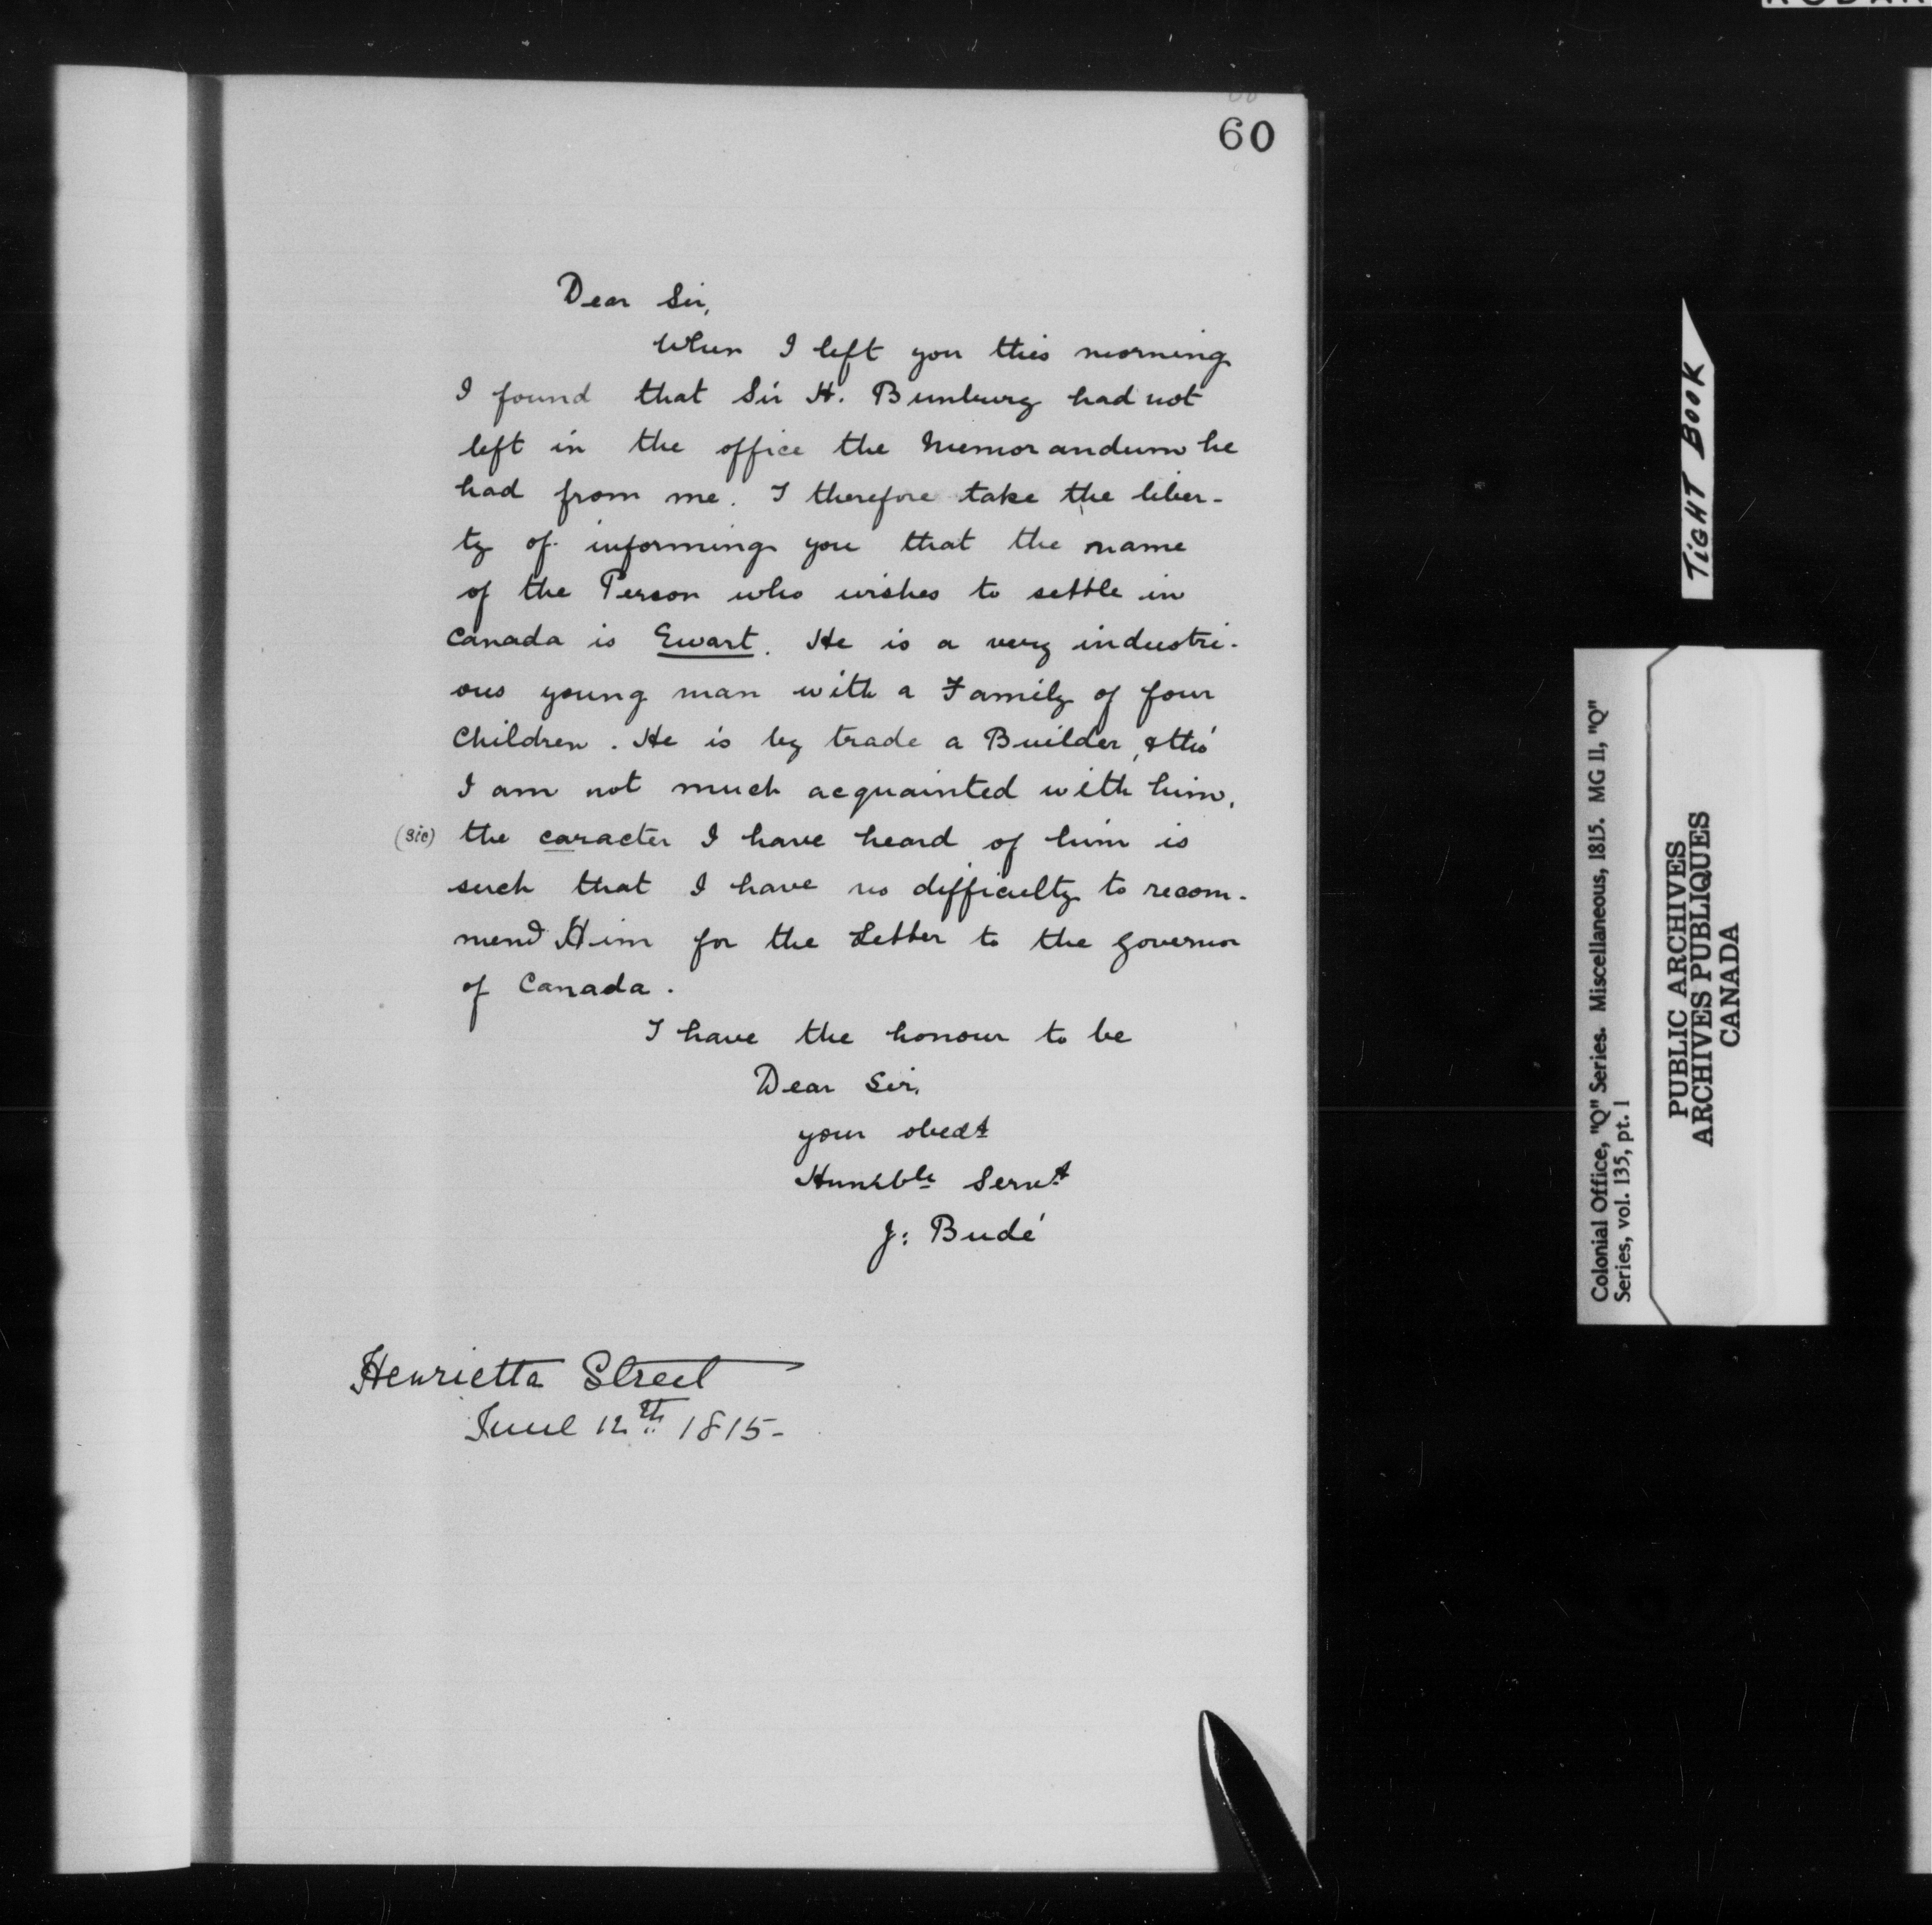 60
Dear Sir,
When I left you this morning
I found that Sir H. Bunbury had not
left in the office the Memorandum he
had from me. I therefore take the liber-
ty of informing you that the name
of the Person who wishes to settle in
Canada is Ewart. He is a very industri-
ous young man with a Family of four
Children. He is by trade a Builder, & tho'
I am not much acquainted with him,
(sic) the caracter I have heard of him is
such that I have no difficulty to recom-
mend Him for the Letter to the Governor
of Canada.
I have the honour to be
Dear Sir,
your obedt
Humble Servt
J: Budé
Henrietta Street
June 12th 1815-
TIGHT BOOK
Colonial Office, "Q" Series. Miscellaneous, 1815. MG 11, "Q"
Series, vol. 135, pt. 1
PUBLIC ARCHIVES
ARCHIVES PUBLIQUES
CANADA